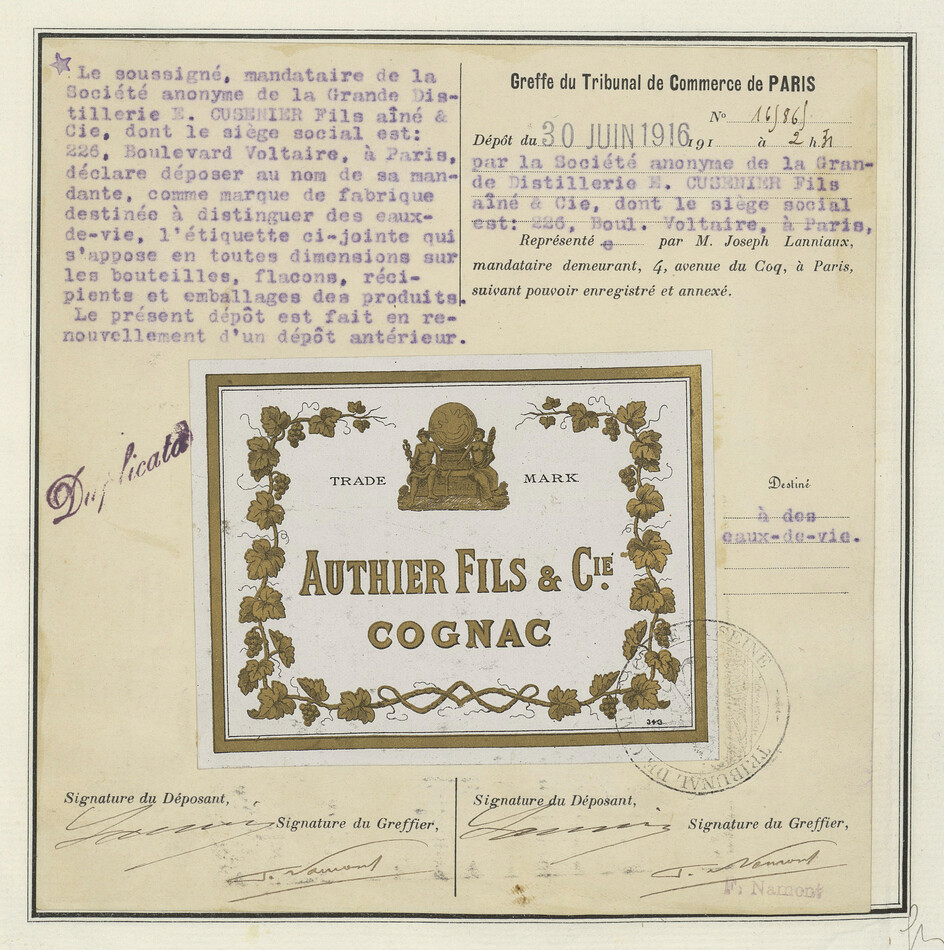 Le soussigné, mandataire de la
Société anonyme de la Grande Dis-
tillerie E. CUSENIER Fils aîné &
Cie, dont le siège social est:
226, Boulevard Voltaire, à Paris,
déclare déposer au nom de sa man-
dante, comme marque de fabrique
destinée à distinguer des eaux-
de-vie, l'étiquette ci-jointe qui
s'appose en toutes dimensions sur
les bouteilles, flacons, réci-
pients et emballages des produits.
Le présent dépôt est fait en re-
nouvellement d'un dépôt antérieur.
Greffe du Tribunal de Commerce de PARIS
N°
Dépôt du 30 JUIN 1916 191 à 2 h.
par la Société anonyme de la Gran-
de Distillerie E. CUSENIER Fils
aîné & Cie, dont le siège social
est: 226, Boul. Voltaire, à Paris,
Représenté e par M. Joseph Lanniaux,
mandataire demeurant, 4, avenue du Coq, à Paris,
suivant pouvoir enregistré et annexé.
Duplicata
TRADE MARK
AUTHIER FILS & CIE
COGNAC
343
Destiné
à des
eaux-de-vie.
SEINE
TRIBUNAL DE
Signature du Déposant,
Signature du Greffier,
Signature du Déposant,
Signature du Greffier,
F. Namont